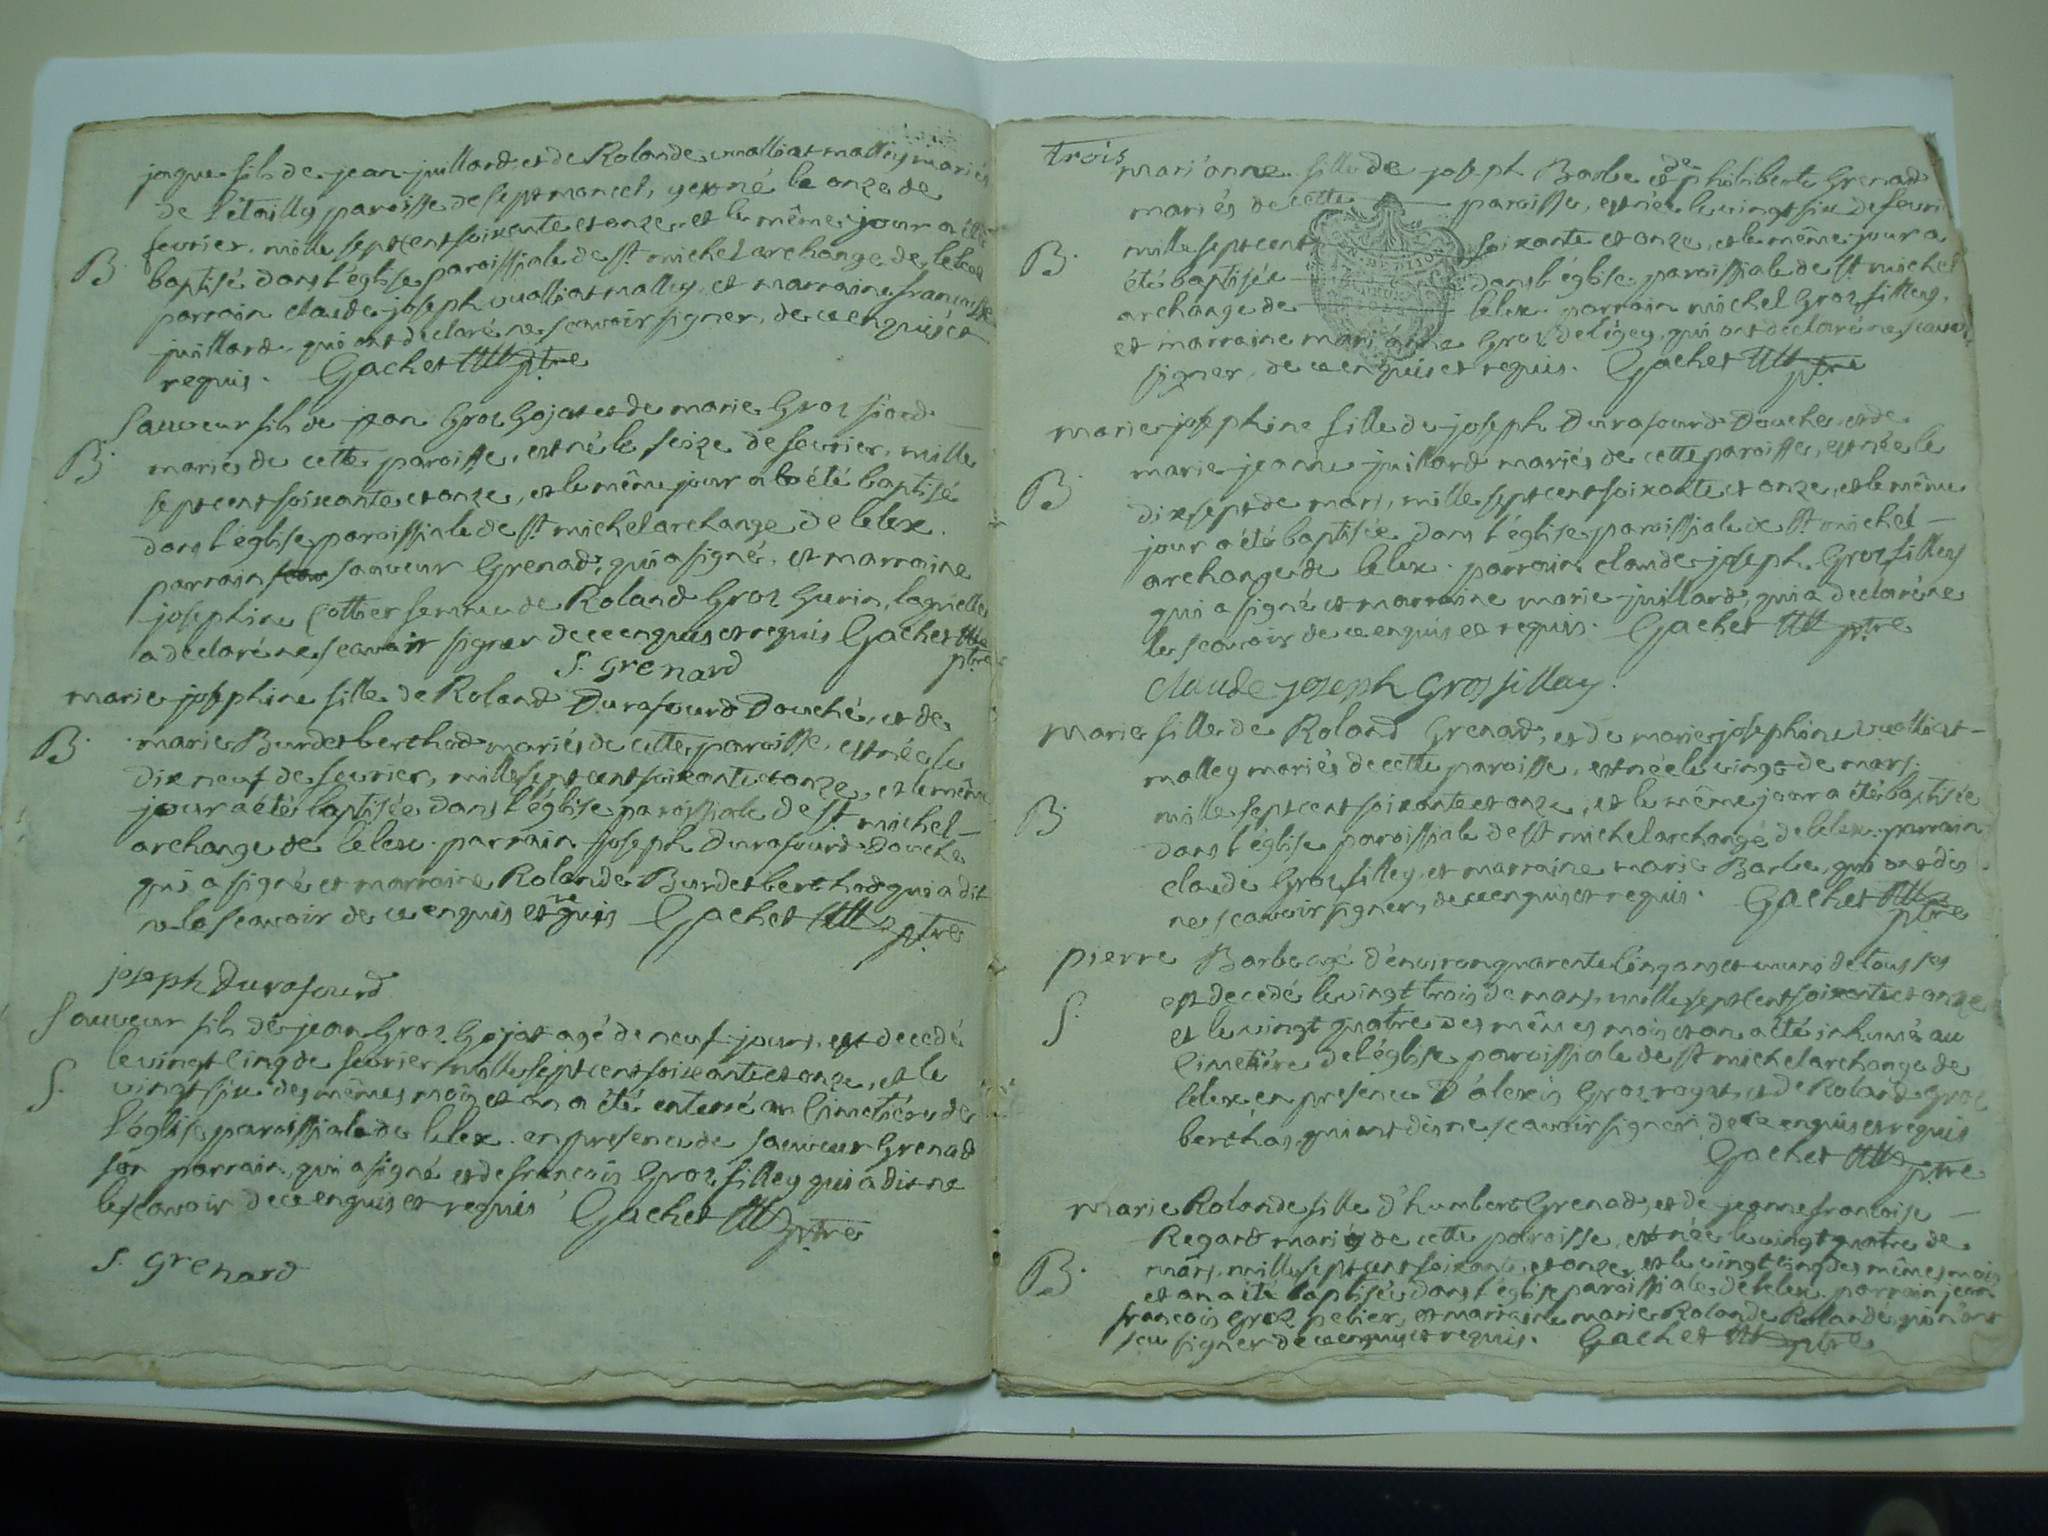 jaque fils de jean juillard et de Rolande vualliat malley mariés
de l'étailly paroisse de septmoncel, y est né le onze de
fevrier, mille sept cent soixante et onze, et le même jour a été
B. baptisé dans l'église paroissiale de st michel archange de lelex
parrain claude joseph vualliat malley, et marraine francoise
juillard, qui ont declaré ne scavoir signer, de ce enquis et
requis. Gachet ptre
Sauveur fils de jean Groz Gojat et de marie Groz
B. mariés de cette paroisse, est né le seize de fevrier, mille
sept cent soixante et onze, et le même jour a été baptisé
dans l'église paroissiale de st michel archange de lelex.
parrain sauveur Grenard, qui a signé, et marraine
josephine Cottier femme de Roland Groz Gurin, laquelle
a declaré ne scavoir signer de ce enquis et requis Gachet
S. Grenard ptre
marie josephine fille de Roland Durafourd Douché, et de
B. marie Burdet berthod mariés de cette paroisse, est née le
dix neuf de fevrier, mille sept cent soixante et onze, et le même
jour a été baptisée dans l'église paroissiale de st michel
archange de lelex. parrain joseph Durafourd Douché
qui a signé et marraine Rolande Burdet berthod qui a dit
ne le scavoir de ce enquis et requis Gachet ptre
joseph Durafourd
Sauveur fils de jean Groz Gojat agé de neuf jours, est decedé
le vingt cinq de fevrier mille sept cent soixante et onze, et le
S. vingt six des mêmes mois et an a été enterré au Cimetiére de
l'église paroissiale de lelex. en presence de sauveur Grenard
son parrain, qui a signé et de francois Groz filley qui a dit ne
le scavoir de ce enquis et requis Gachet ptre
S. Grenard
trois
marianne fille de joseph Barbe et de philiberte Grenard
mariés de cette paroisse, est née le vingt six de fevri
B. mille sept cent soixante et onze, et le même jour a
été baptisée dans l'église paroissiale de st michel
archange de lelex. parrain michel Groz filley,
et marraine marianne Groz qui ont declaré ne scavoir
signer, de ce enquis et requis. Gachet ptre
marie josephine fille de joseph Durafourd Douché, et de
marie jeanne juillard mariés de cette paroisse, est née le
B. dix sept de mars, mille sept cent soixante et onze, et le même
jour a été baptisée dans l'église paroissiale de st michel
archange de lelex. parrain claude joseph Groz filley
qui a signé et marraine marie juillard, qui a declaré ne
le scavoir de ce enquis et requis. Gachet ptre
Claude joseph Grosfilley.
marie fille de Roland Grenard, et de marie josephine vualliat
malley mariés de cette paroisse, est née le vingt de mars.
B. mille sept cent soixante et onze, et le même jour a été baptisée
dans l'église paroissiale de st michel archange de lelex. parrain
claude Groz filley, et marraine marie Barbe, qui ont dis
ne scavoir signer, de ce enquis et requis. Gachet ptre
pierre Barbe agé d'environ quarente cinq ans et muni de tous ses
est decedé le vingt trois de mars, mille sept cent soixante et onze
S. et le vingt quatre des mêmes mois et an a été inhumé au
Cimetiére de l'église paroissiale de st michel archange de
lelex en presence d'alexis Groz rogat, et de Roland Groz
berthas, qui ont dis ne scavoir signer, de ce enquis et requis
Gachet ptre
marie Rolande fille d'humbert Grenard, et de jeanne francoise
Regard mariés de cette paroisse, est née le vingt quatre de
B. mars, mille sept cent soixante et onze, et le vingt cinq des mêmes mois
et an a été baptisée dans l'église paroissiale de lelex. parrain jean
francois Groz pelier, et marraine marie Rolande Rolandé, qui n'ont
scu signer de ce enquis et requis. Gachet ptre